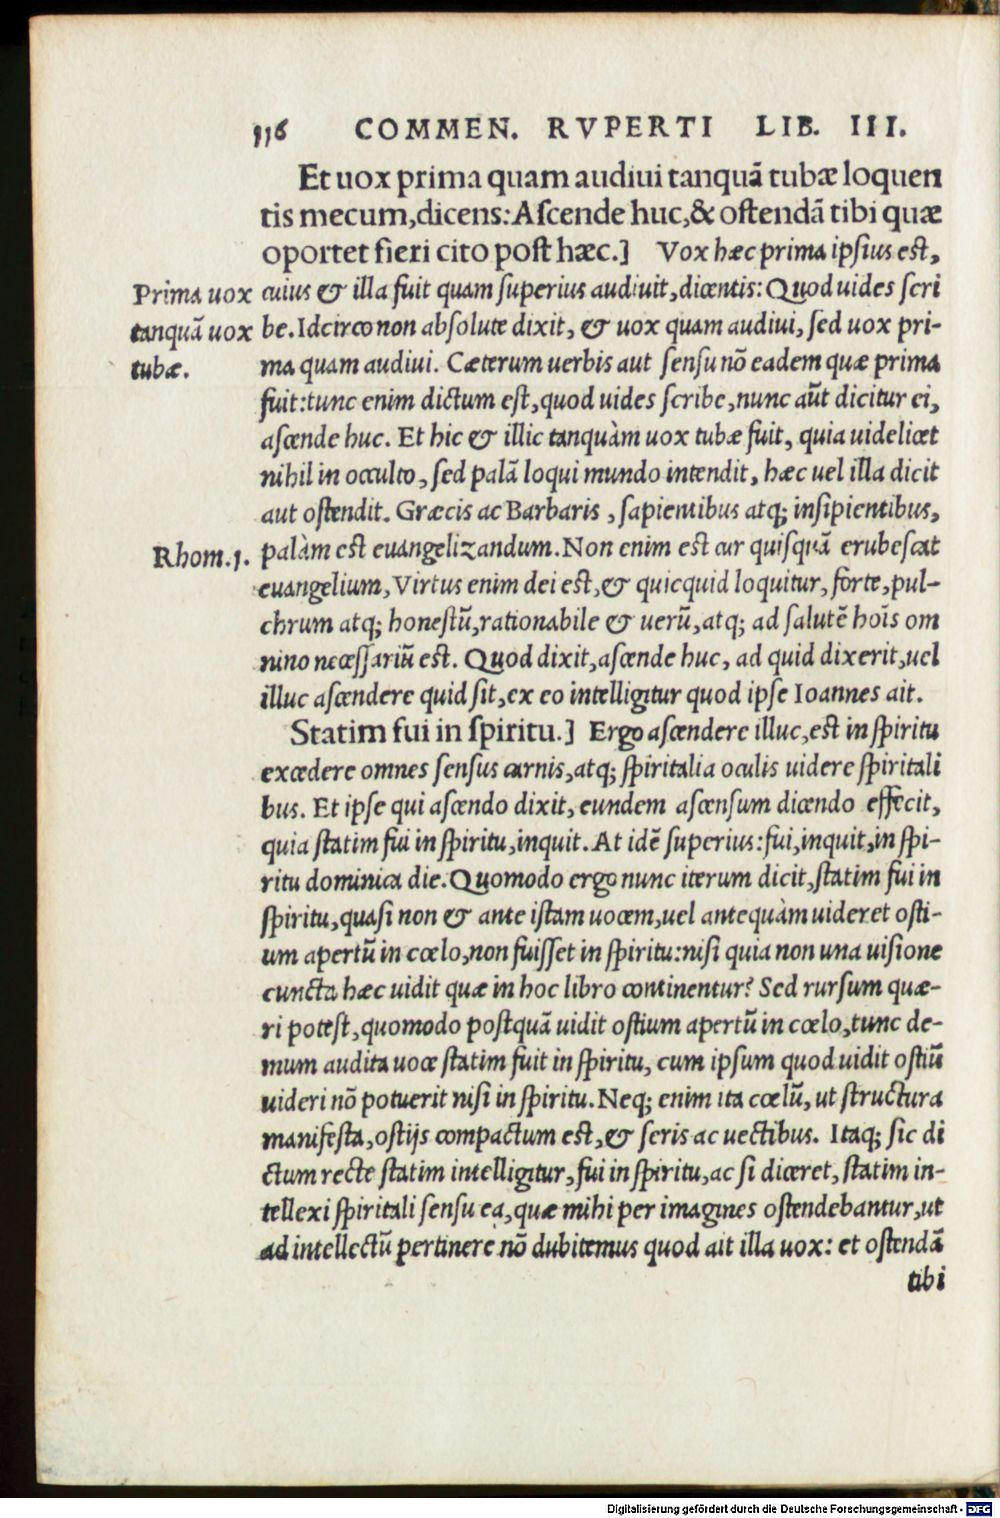 116 COMMEN. RVPERTI LIB. III.
Et uox prima quam audiui tanquã tubæ loquen
tis mecum, dicens: Ascende huc, & ostendã tibi quæ
oportet fieri cito post hæc.] Vox hæc prima ipsius est,
Prima uox
tanquã uox
tubæ.
cuius & illa fuit quam superius audiuit, dicentis: Quod uides scri
be. Idcirco non absolute dixit, & uox quam audiui, sed uox pri-
ma quam audiui. Cæterum uerbis aut sensu nõ eadem quæ prima
fuit: tunc enim dictum est, quod uides scribe, nunc aũt dicitur ei,
ascende huc. Et hic & illic tanquàm uox tubæ fuit, quia uidelicet
nihil in occulto, sed palã loqui mundo intendit, hæc uel illa dicit
aut ostendit. Græcis ac Barbaris, sapientibus atq; insipientibus,
Rhom. 1.
palàm est euangelizandum. Non enim est cur quisquã erubescat
euangelium, Virtus enim dei est, & quicquid loquitur, forte, pul-
chrum atq; honestũ, rationabile & uerũ, atq; ad salutẽ hoĩs om
nino necessariũ est. Quod dixit, ascende huc, ad quid dixerit, uel
illuc ascendere quid sit, ex eo intelligitur quod ipse Ioannes ait.
Statim fui in spiritu.] Ergo ascendere illuc, est in spiritu
excedere omnes sensus carnis, atq; spiritalia oculis uidere spiritali
bus. Et ipse qui ascendo dixit, eundem ascensum dicendo effecit,
quia statim fui in spiritu, inquit. At idẽ superius: fui, inquit, in spi-
ritu dominica die. Quomodo ergo nunc iterum dicit, statim fui in
spiritu, quasi non & ante istam uocem, uel antequàm uideret osti-
um apertũ in cœlo, non fuisset in spiritu: nisi quia non una uisione
cuncta hæc uidit quæ in hoc libro continentur? Sed rursum quæ-
ri potest, quomodo postquã uidit ostium apertũ in cœlo, tunc de-
mum audita uoce statim fuit in spiritu, cum ipsum quod uidit ostiũ
uideri nõ potuerit nisi in spiritu. Neq; enim ita cœlũ, ut structura
manifesta, ostijs compactum est, & seris ac uectibus. Itaq; sic di
ctum recte statim intelligitur, fui in spiritu, ac si diceret, statim in-
tellexi spiritali sensu ea, quæ mihi per imagines ostendebantur, ut
ad intellectũ pertinere nõ dubitemus quod ait illa uox: et ostendã
tibi
Digitalisierung gefördert durch die Deutsche Forschungsgemeinschaft - DFG